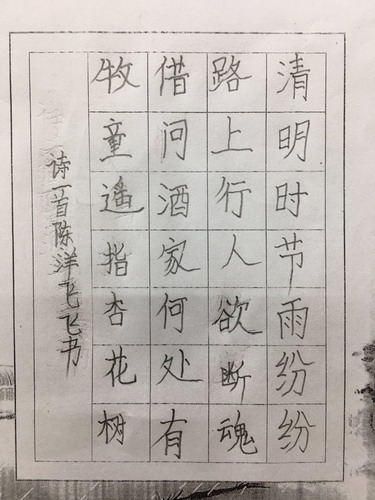 清明时节雨纷纷
路上行人欲断魂
借问酒家何处有
牧童遥指杏花树
诗一首陈洋飞飞书